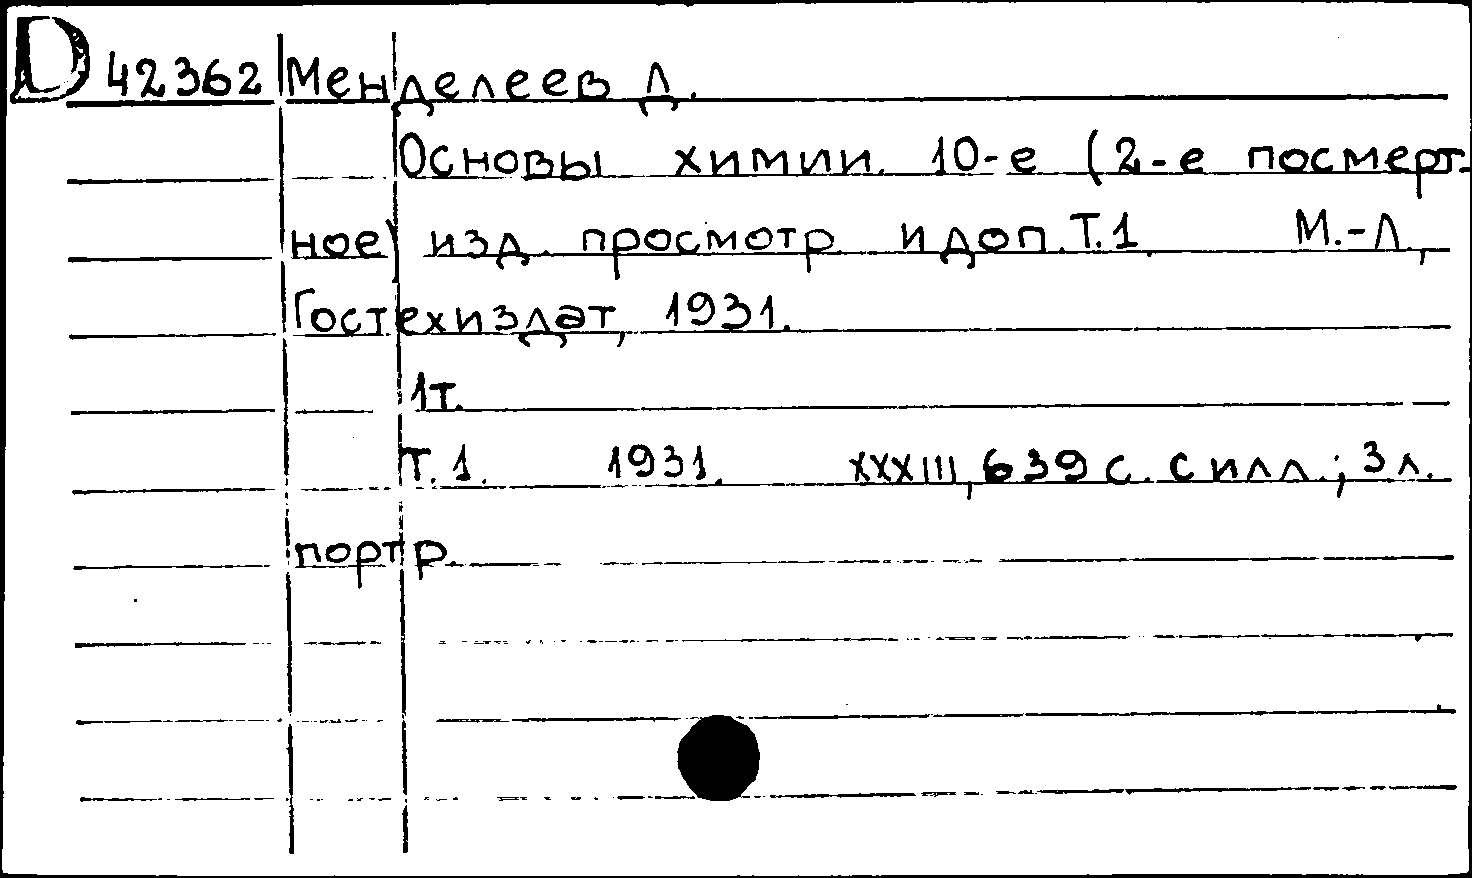 D 42362 Менделеев Д.
Основы химии. 10-е (2-е посмерт-
ное) изд. просмотр. и доп. Т.1. М.-Л.,
Гостехиздат, 1931.
1т.
Т.1. 1931. XXXIII, 639 с. с илл.; 3 л.
портр.